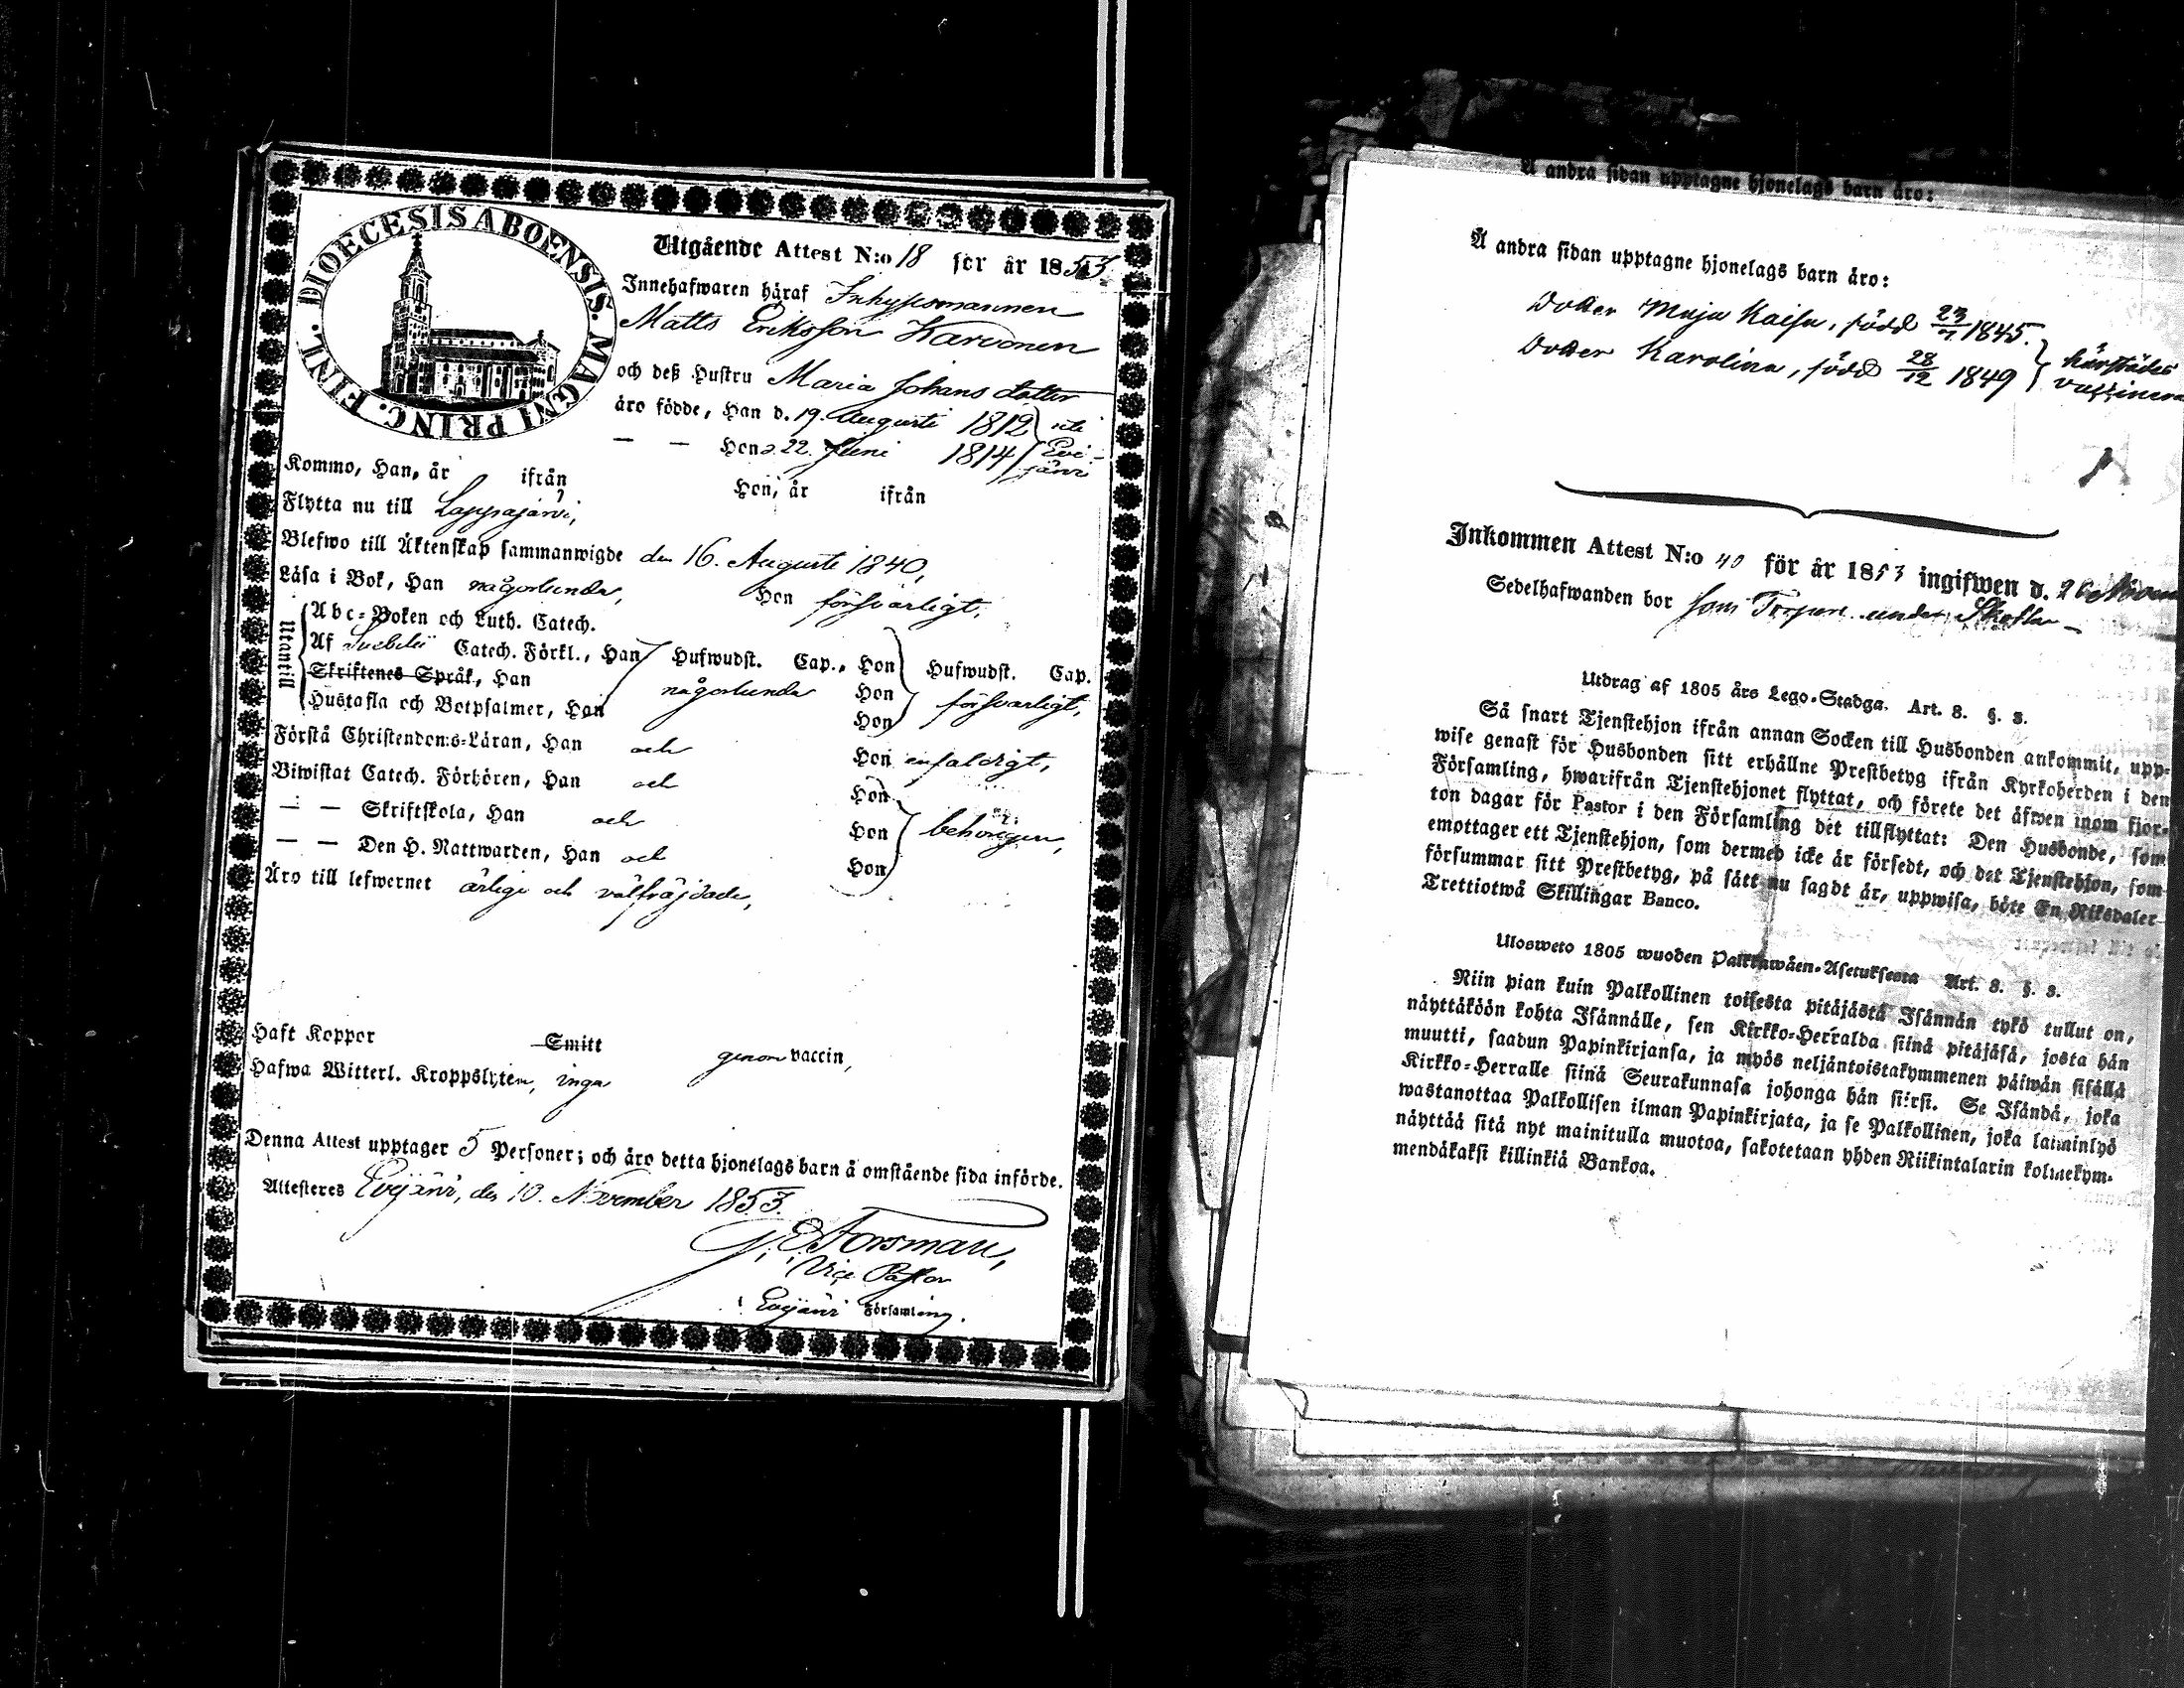 DIOECESIS ABOENSIS. MAGNI PRINC. FINL.
Utgående Attest N:o 18 för år 1853.
Innehafwaren häraf Inhysesmannen
Matts Eriksson Karvonen
och deß Hustru Maria Johansdotter
äro födde, Han d. 19. Augusti 1812
— — Hon d. 22. Juni 1814 } uti Evijärvi
Kommo, Han, år ifrån Hon, år ifrån
Flytta nu till Lappajärvi,
Blefwo till Äktenskap sammanwigde den 16. Augusti 1840,
Läsa i Bok, Han någorlunda, Hon försvarligt,
Utantill
Abc-Boken och Luth. Catech.
Af Svebelii Catech. Förkl., Han Hufwudst. Cap., Hon Hufwudst. Cap.
Skriftenes Språk, Han någorlunda Hon försvarligt,
Hustafla och Botpsalmer, Han Hon
Förstå Christendoms-Läran, Han och Hon enfaldigt,
Biwistat Catech. Förhören, Han och Hon
— — Skriftskola, Han och Hon behörigen,
— — Den H. Nattwarden, Han och Hon
Äro till lefwernet ärlige och välfräjdade,
Haft Koppor Smitt genom vaccin,
Hafwa Witterl. Kroppslyten, inga
Denna Attest upptager 5 Personer; och äro detta hjonelags barn å omstående sida införde.
Attesteres Evijärvi, den 10. November 1853.
G. E. Forsman,
Vice Pastor
Evijärvi Församling.
Å andra sidan upptagne hjonelags barn äro:
Å andra sidan upptagne hjonelags barn äro:
Dotter Maja Kaisa, född 23/7 1845.
Dotter Karolina, född 28/12 1849 } härstädes
Inkommen Attest N:o 40 för år 1853 ingifwen d. 26
Sedelhafwanden bor som under
Utdrag af 1805 års Lego-Stadga. Art. 8. §. 3.
Så snart Tjenstehjon ifrån annan Socken till Husbonden ankommit, upp-
wise genast för Husbonden sitt erhållne Prestbetyg ifrån Kyrkoherden i den
Församling, hwarifrån Tjenstehjonet flyttat, och förete det äfwen inom fjor-
ton dagar för Pastor i den Församling det tillflyttat: Den Husbonde, som
emottager ett Tjenstehjon, som dermed icke är försedt, och det Tjenstehjon, som
försummar sitt Prestbetyg, på sätt nu sagdt är, uppwisa, böte En Riksdaler
Trettiotwå Skillingar Banco.
Ulosweto 1805 wuoden Palkkawäen-Asetuksesta Art. 8. §. 3.
Niin pian kuin Palkollinen toisesta pitäjästä Isännän tykö tullut on,
näyttäköön kohta Isännälle, sen Kirkko-Herralda siinä pitäjäsä, josta hän
muutti, saadun Papinkirjansa, ja myös neljäntoistakymmenen päiwän sisällä
Kirkko-Herralle siinä Seurakunnasa johonga hän siirsi. Se Isändä, joka
wastanottaa Palkollisen ilman Papinkirjata, ja se Palkollinen, joka laiminlyö
näyttää sitä nyt mainitulla muotoa, sakotetaan yhden Riikintalarin kolmekym-
mendäkaksi killinkiä Bankoa.